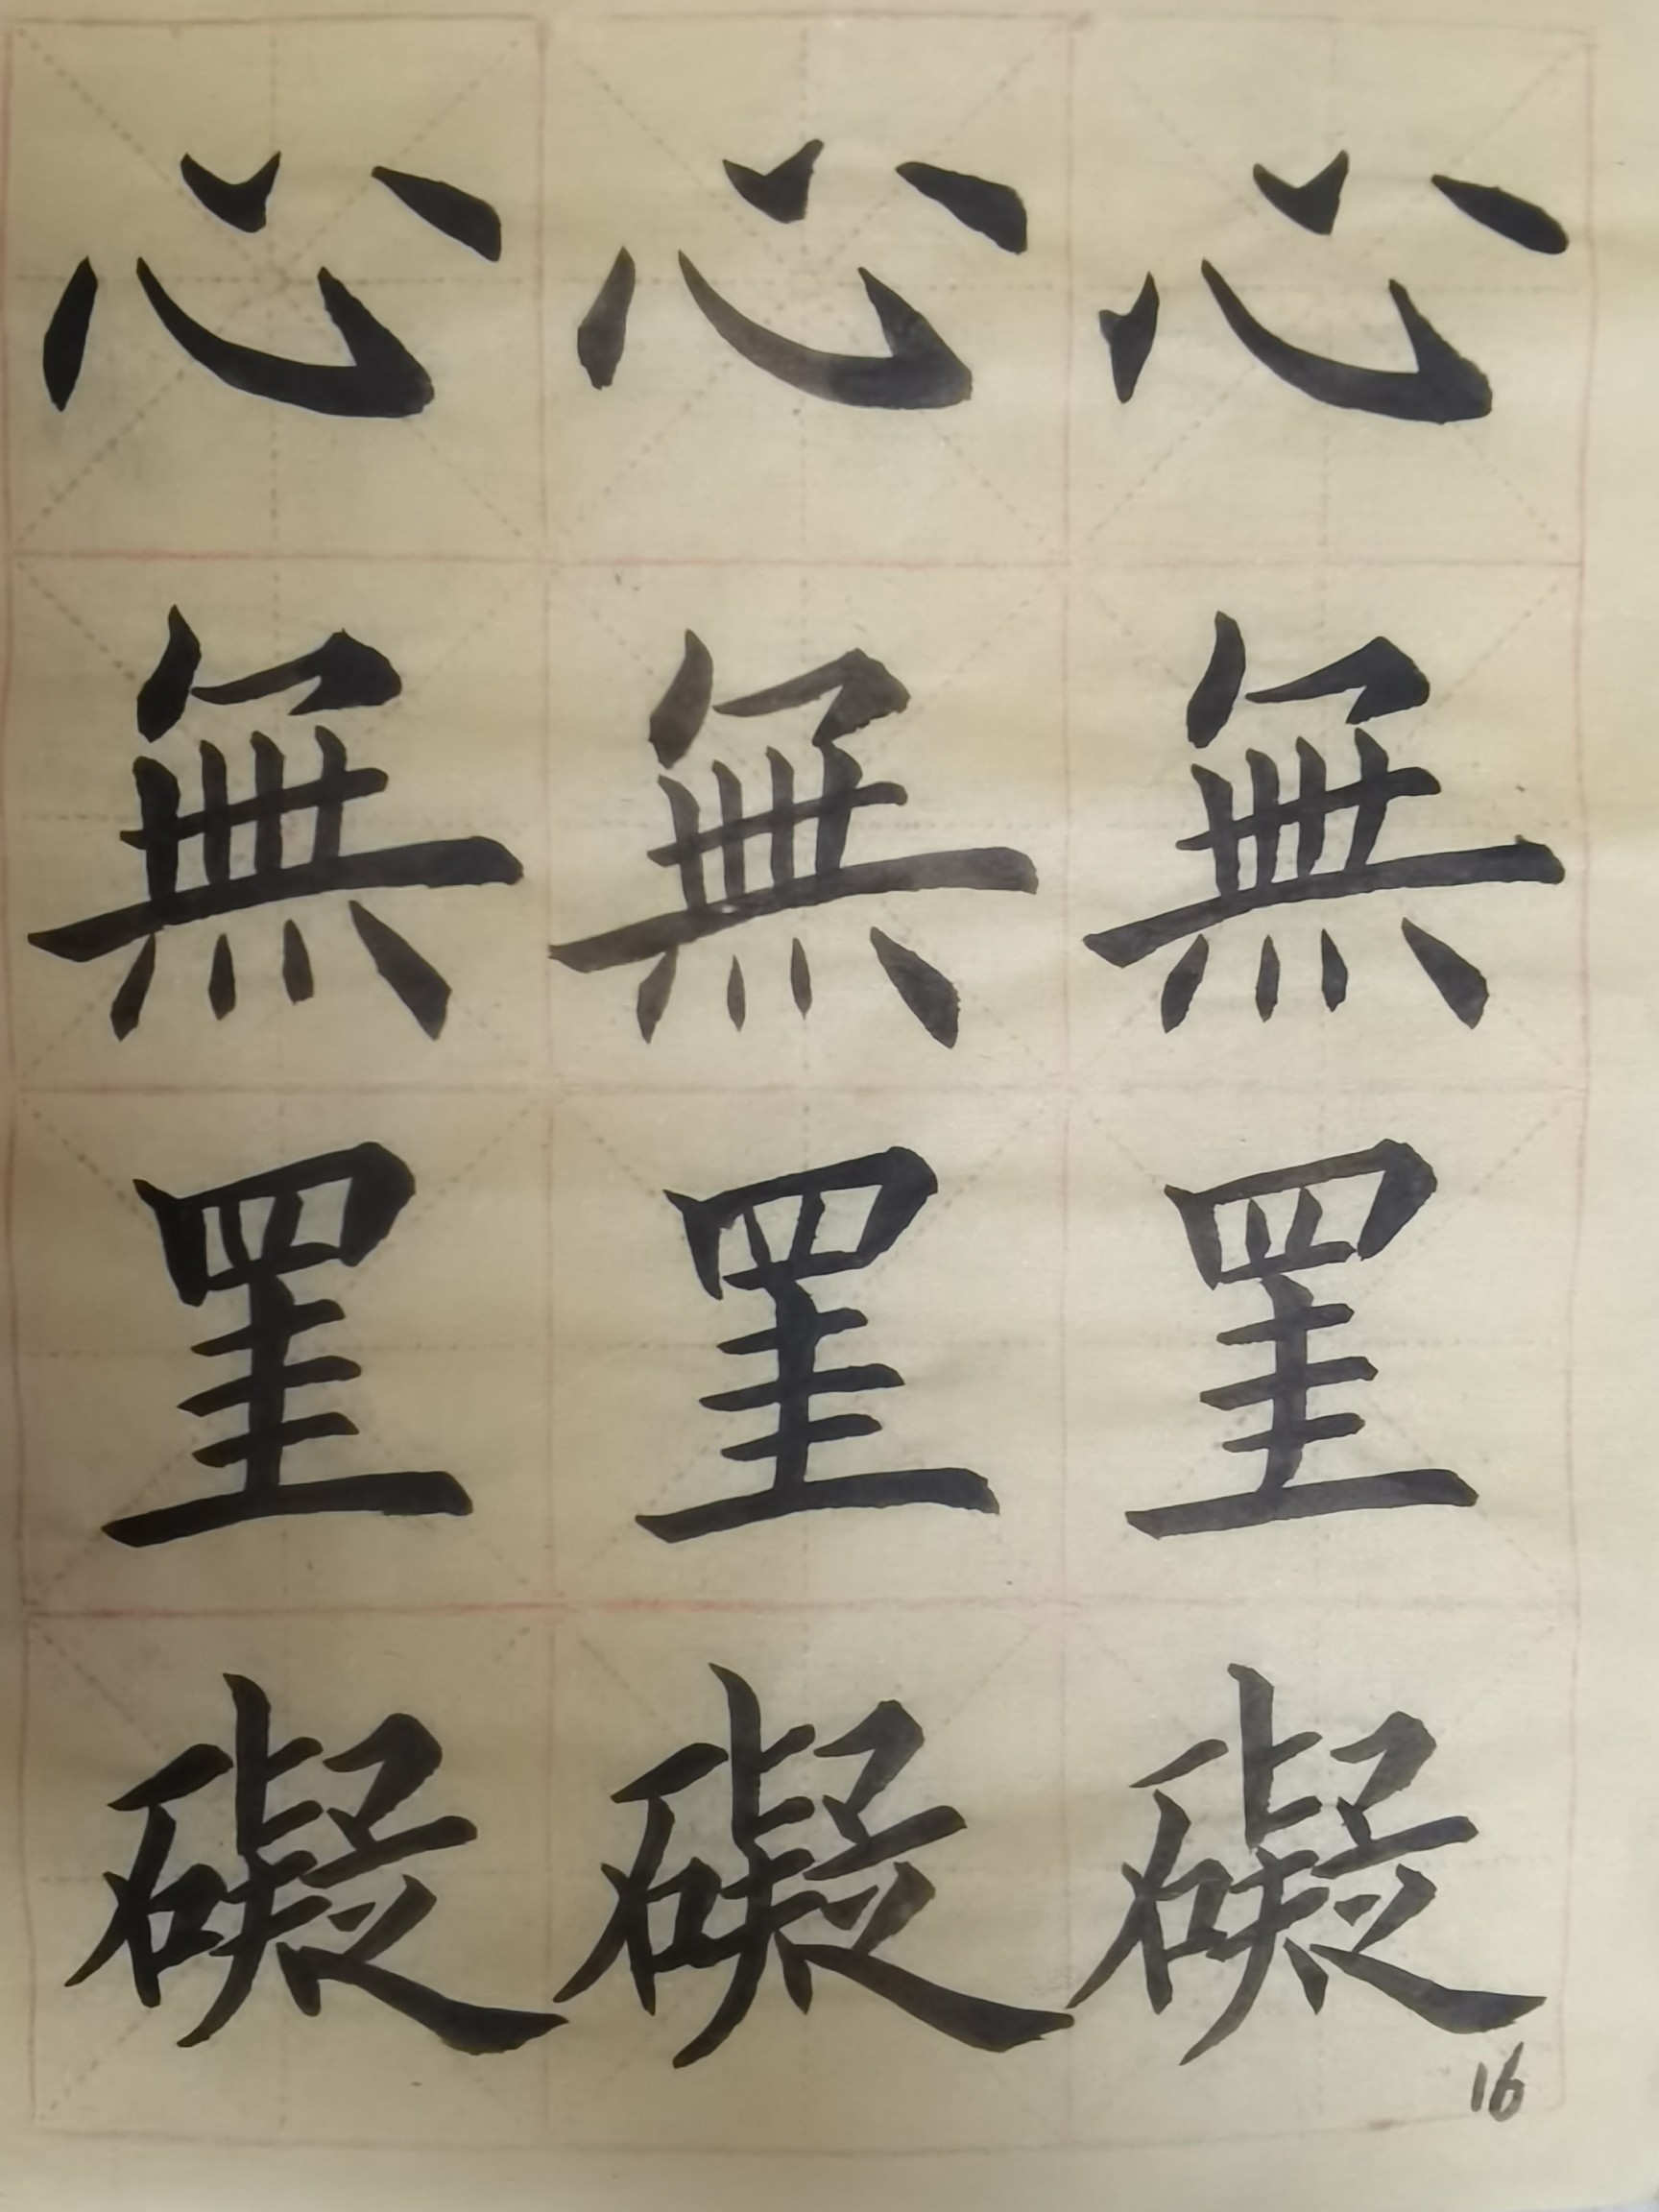 心心心
無無無
罣罣罣
礙礙礙
16